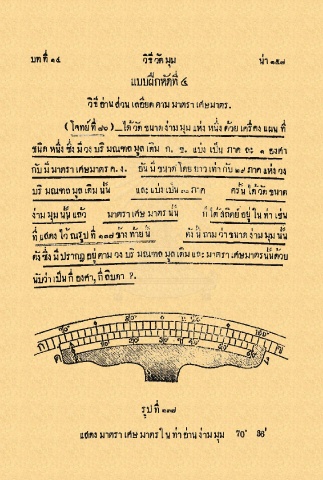 บทที่ ๑๔ วิธีวัดมุม น่า ๑๕๗
แบบฝึกหัดที่ ๔
วิธีอ่านส่วนเลอียดตามมาตราเศษมาตร.
(โจทย์ที่ ๗๐) ได้วัดขนาดง่ามมุมแห่งหนึ่งด้วยเครื่องแผนที่
ชนิดหนึ่งซึ่งมีวงบริมณฑลมูลเดิม ก. ข. แบ่งเป็นภาคละ ๑ องศา
กับมีมาตราเศษมาตร ค. ง. อันมีขนาดโดยยาวเท่ากับ ๑๙ ภาคแห่งวง
บริมณฑลมูลเดิมนั้น และแบ่งเป็น ๒๐ ภาค ครั้นได้วัดขนาด
ง่ามมุมนั้นแล้ว มาตราเศษมาตรนั้น ก็ได้สถิตย์อยู่ในท่าเช่น
ที่แสดงไว้ในรูปที่ ๑๓๗ ข้างท้ายนี้ ดังนี้ถามว่าขนาดง่ามมุมนั้น
ดังซึ่งมีปรากฏอยู่ตามวงบริมณฑลมูลเดิมและมาตราเศษมาตรนั้นด้วย
นับว่าเป็นกี่องศา, กี่ลิบดา ?.
ก ข
ค ง
รูปที่ ๑๓๗
แสดงมาตราเศษมาตรในท่าอ่านง่ามมุม 70° 36′